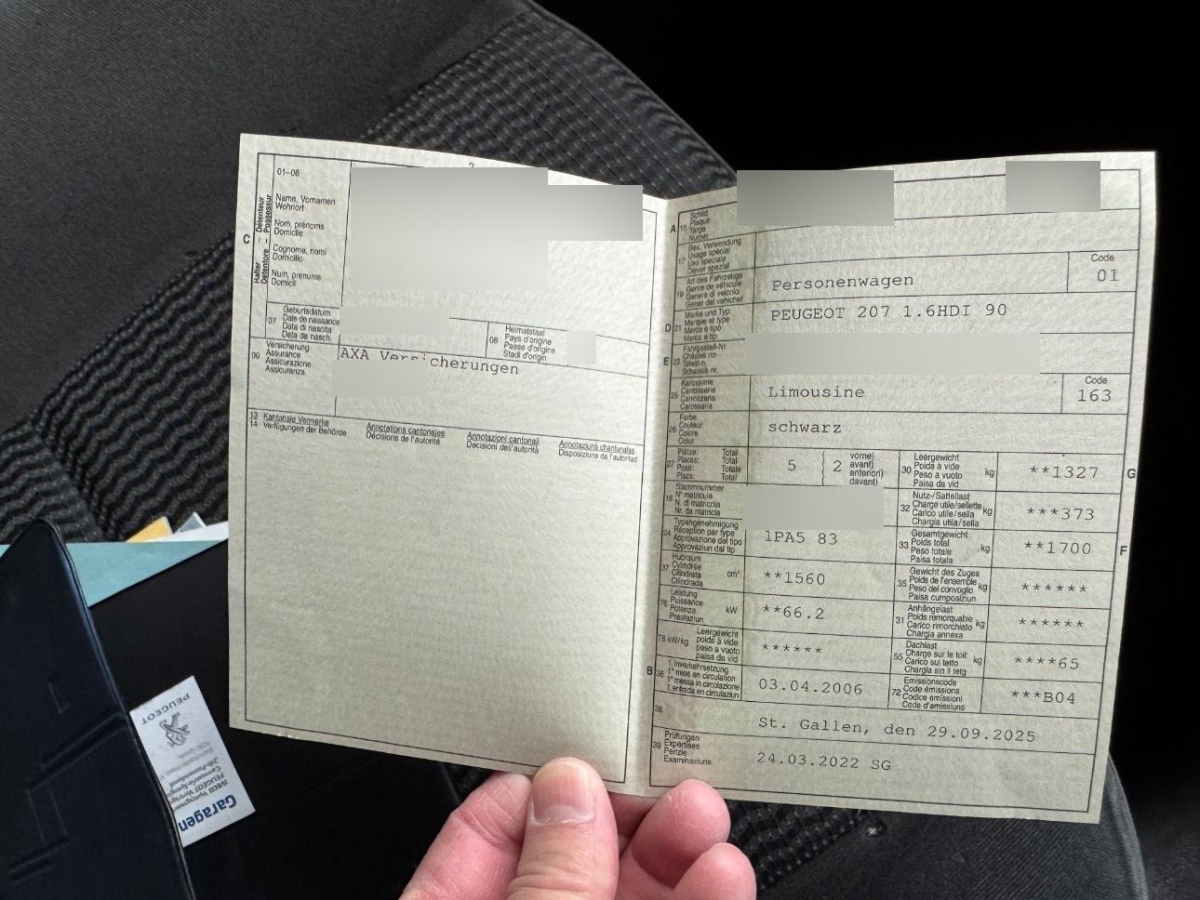 2
01-06
Name, Vornamen
Wohnort
Nom, prénoms
Domicile
Cognome, nomi
Domicilio
Num, prenums
Domicil
C
Halter
Détenteur
Detentore
Possessur
07
Geburtsdatum
Date de naissance
Data di nascita
Data da nasch.
08
Heimatstaat
Pays d'origine
Paese d'origine
Stadi d'origin
09
Versicherung
Assurance
Assicurazione
Assicuranza
AXA Versicherungen
13
14
Kantonale Vermerke
Verfügungen der Behörde
Annotations cantonales
Décisions de l'autorité
Annotazioni cantonali
Decisioni dell'autorità
Annotaziuns chantunalas
Disposiziuns da l'autoritad
A
15
Schild
Plaque
Targa
Numer
17
Bes. Verwendung
Usage spécial
Uso speciale
Diever spezial
19
Art des Fahrzeugs
Genre de véhicule
Genere di veicolo
Gener dal vehichel
Personenwagen
Code
01
D
21
Marke und Typ
Marque et type
Marca e tipo
Marca e tip
PEUGEOT 207 1.6HDI 90
E
23
Fahrgestell-Nr.
Châssis no
Telaio n.
Schassis nr.
25
Karosserie
Carrosserie
Carrozzeria
Carossaria
Limousine
Code
163
26
Farbe
Couleur
Colore
Colur
schwarz
27
Plätze: Total
Places: Total
Posti: Totale
Plazs: Total
5
2
vorne)
avant)
anteriori)
davant)
30
Leergewicht
Poids à vide
Peso a vuoto
Paisa da vid
kg
**1327
G
18
Stammnummer
N° matricule
N. di matricola
Nr. da matricla
32
Nutz-/Sattellast
Charge utile/sellette
Carico utile/sella
Chargia utila/sella
kg
***373
24
Typengenehmigung
Réception par type
Approvazione del tipo
Approvaziun dal tip
1PA5 83
33
Gesamtgewicht
Poids total
Peso totale
Paisa totala
kg
**1700
F
37
Hubraum
Cylindrée
Cilindrata
Cilindrada
cm³
**1560
35
Gewicht des Zuges
Poids de l'ensemble
Peso del convoglio
Paisa cumposiziun
kg
******
76
Leistung
Puissance
Potenza
Prestaziun
kW
**66.2
31
Anhängelast
Poids remorquable
Carico rimorchiato
Chargia annexa
kg
******
78 kW/kg
Leergewicht
poids à vide
peso a vuoto
paisa da vid
******
55
Dachlast
Charge sur le toit
Carico sul tetto
Chargia sin il tetg
kg
****65
B
36
1. Inverkehrsetzung
1re mise en circulation
1a messa in circolazione
1. entrada en circulaziun
03.04.2006
72
Emissionscode
Code émissions
Codice emissioni
Code d'emissiuns
***B04
38
St. Gallen, den 29.09.2025
39
Prüfungen
Expertises
Perizie
Examinaziuns
24.03.2022 SG
PEUGEOT
Garagen